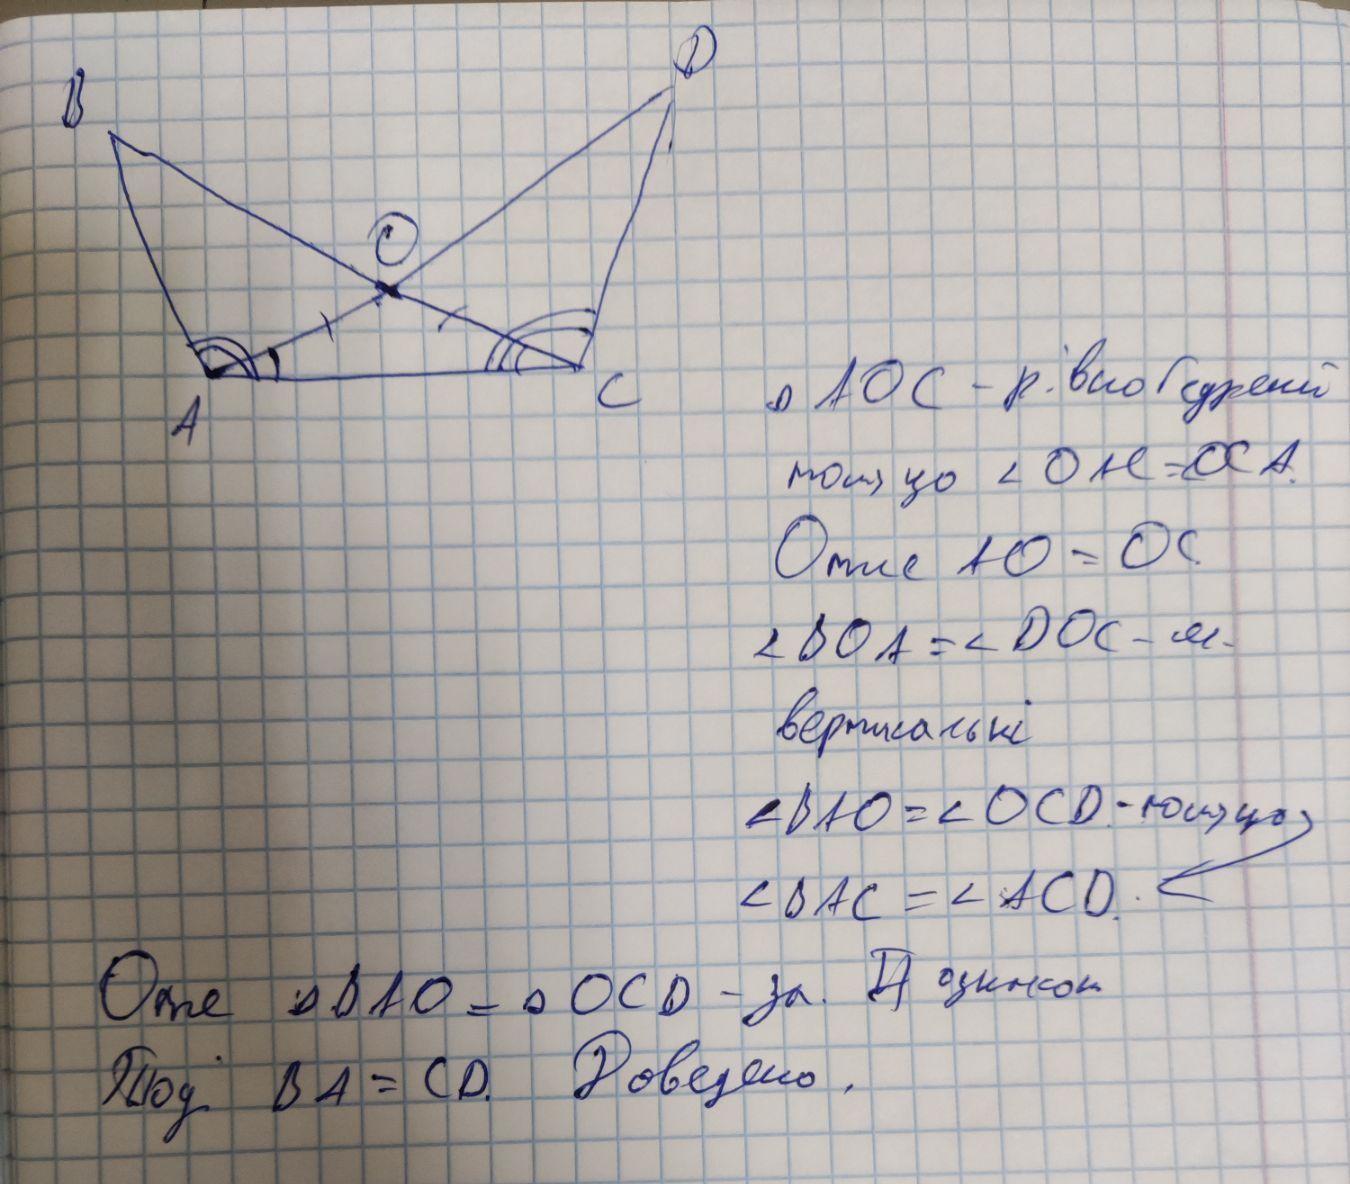 B
D
O
A
C
△ AOC - рівнобедрений
тому, що < OAC = OCA.
Отже AO = OC.
< BOA = < DOC - як
вертикальні
< BAO = < OCD. - тому, що
< BAC = < ACD.
Отже △ BAO = △ OCD - за II ознакою
Тоді BA = CD. Доведено.